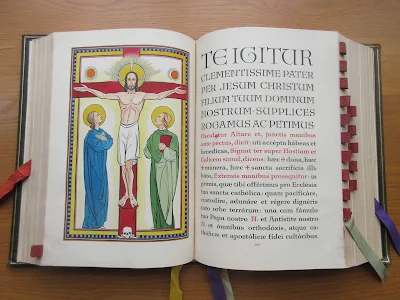 TE IGITUR
CLEMENTISSIME PATER
PER JESUM CHRISTUM
FILIUM TUUM DOMINUM
NOSTRUM SUPPLICES
ROGAMUS AC PETIMUS
Osculatur Altare et, junctis manibus
ante pectus, dicit: uti accépta hábeas et
benedícas, Signat ter super Hostiam et
Calicem simul, dicens: hæc ✠ dona, hæc
✠ múnera, hæc ✠ sancta sacrifícia illi-
báta, Extensis manibus prosequitur: in
primis, quæ tibi offérimus pro Ecclésia
tua sancta cathólica: quam pacificáre,
custodíre, adunáre et régere dignéris
toto orbe terrárum: una cum fámulo
tuo Papa nostro N. et Antístite nostro
N. et ómnibus orthodóxis, atque ca-
thólicæ et apostólicæ fídei cultóribus.